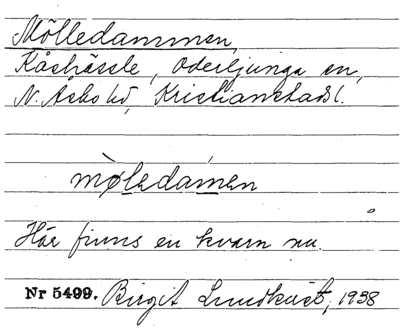 Mölledammen,
Kåshässle, Oderljunga sn,
N. Åsbo hd, Kristianstads l.
møledamen
Här finns en kvarn nu.
Nr 5499. Birgit Lundkvist, 1938